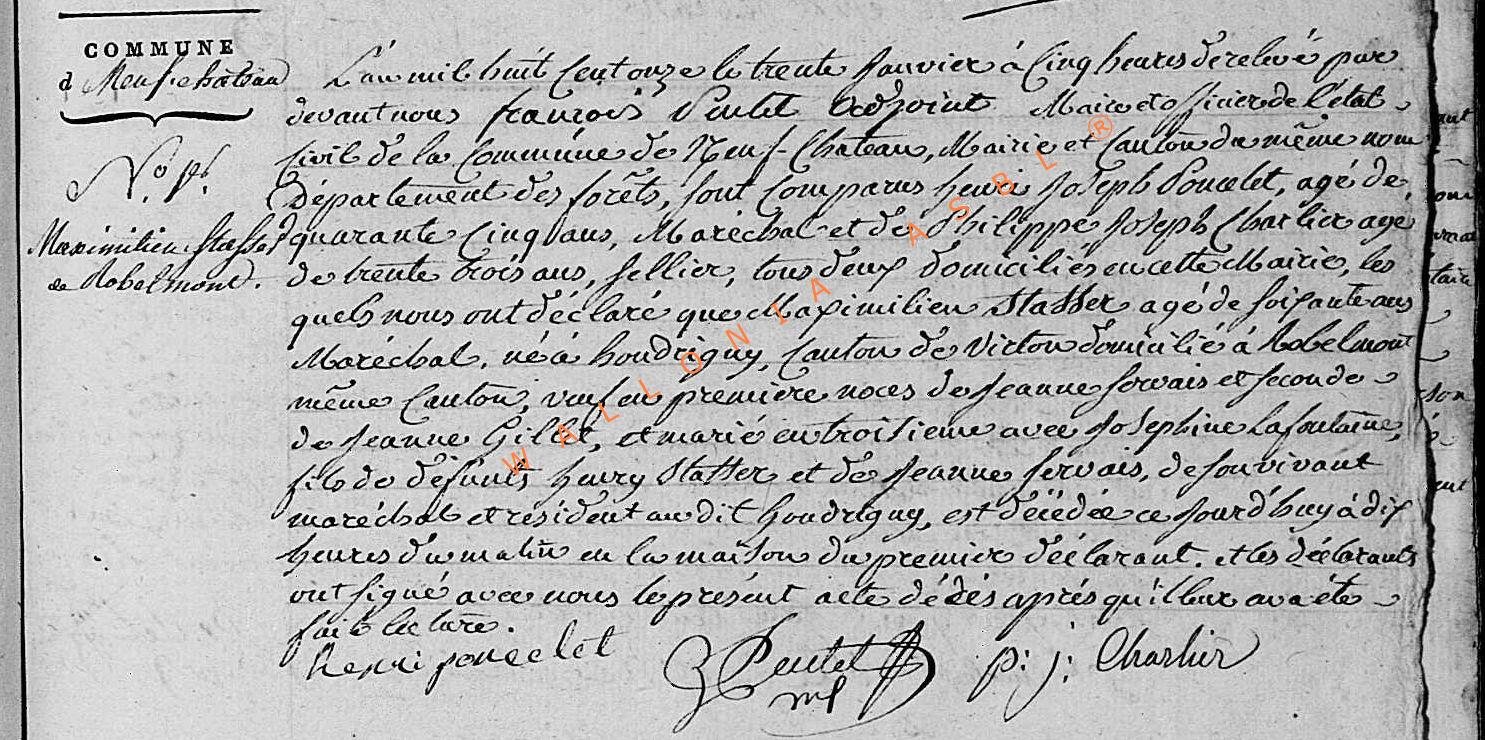 COMMUNE
d Neufchâteau
L'an mil huit cent onze le trente Janvier à Cinq heures de relevé par
devant nous françois Pentel Adjoint Maire et officier de l'état
Civil de la Commune de Neuf-Chateau, Mairie et Canton du même nom
Département des forêts, sont Comparus henri Joseph Poncelet, agé de
quarante Cinq ans, Maréchal et de Philippe Joseph Charlier agé
de trente trois ans, sellier, tous deux domiciliés en cette Mairie, les
quels nous ont déclaré que Maximilien Stasser agé de soixante ans
Maréchal, né à houdrigny, Canton de Virton domicilié à Robelmont
même Canton, veuf en première noces de Jeanne servais et seconde
de Jeanne Gillet, et marié en troisieme avec Josephine Lafontaine,
fils de défunts henry Stasser et de Jeanne servais, de son vivant
maréchal et résident au dit houdrigny, est décédée ce jourd'huy à dix
heures du matin en la maison du premier déclarant. et les déclarants
ont signé avec nous le présent acte décés après qu'il leur a été
fait lecture.
No
Maximilien Stasser
de Robelmont.
henri poncelet
Pentel
p: j: Charlier
WALLONIA ASBL ®